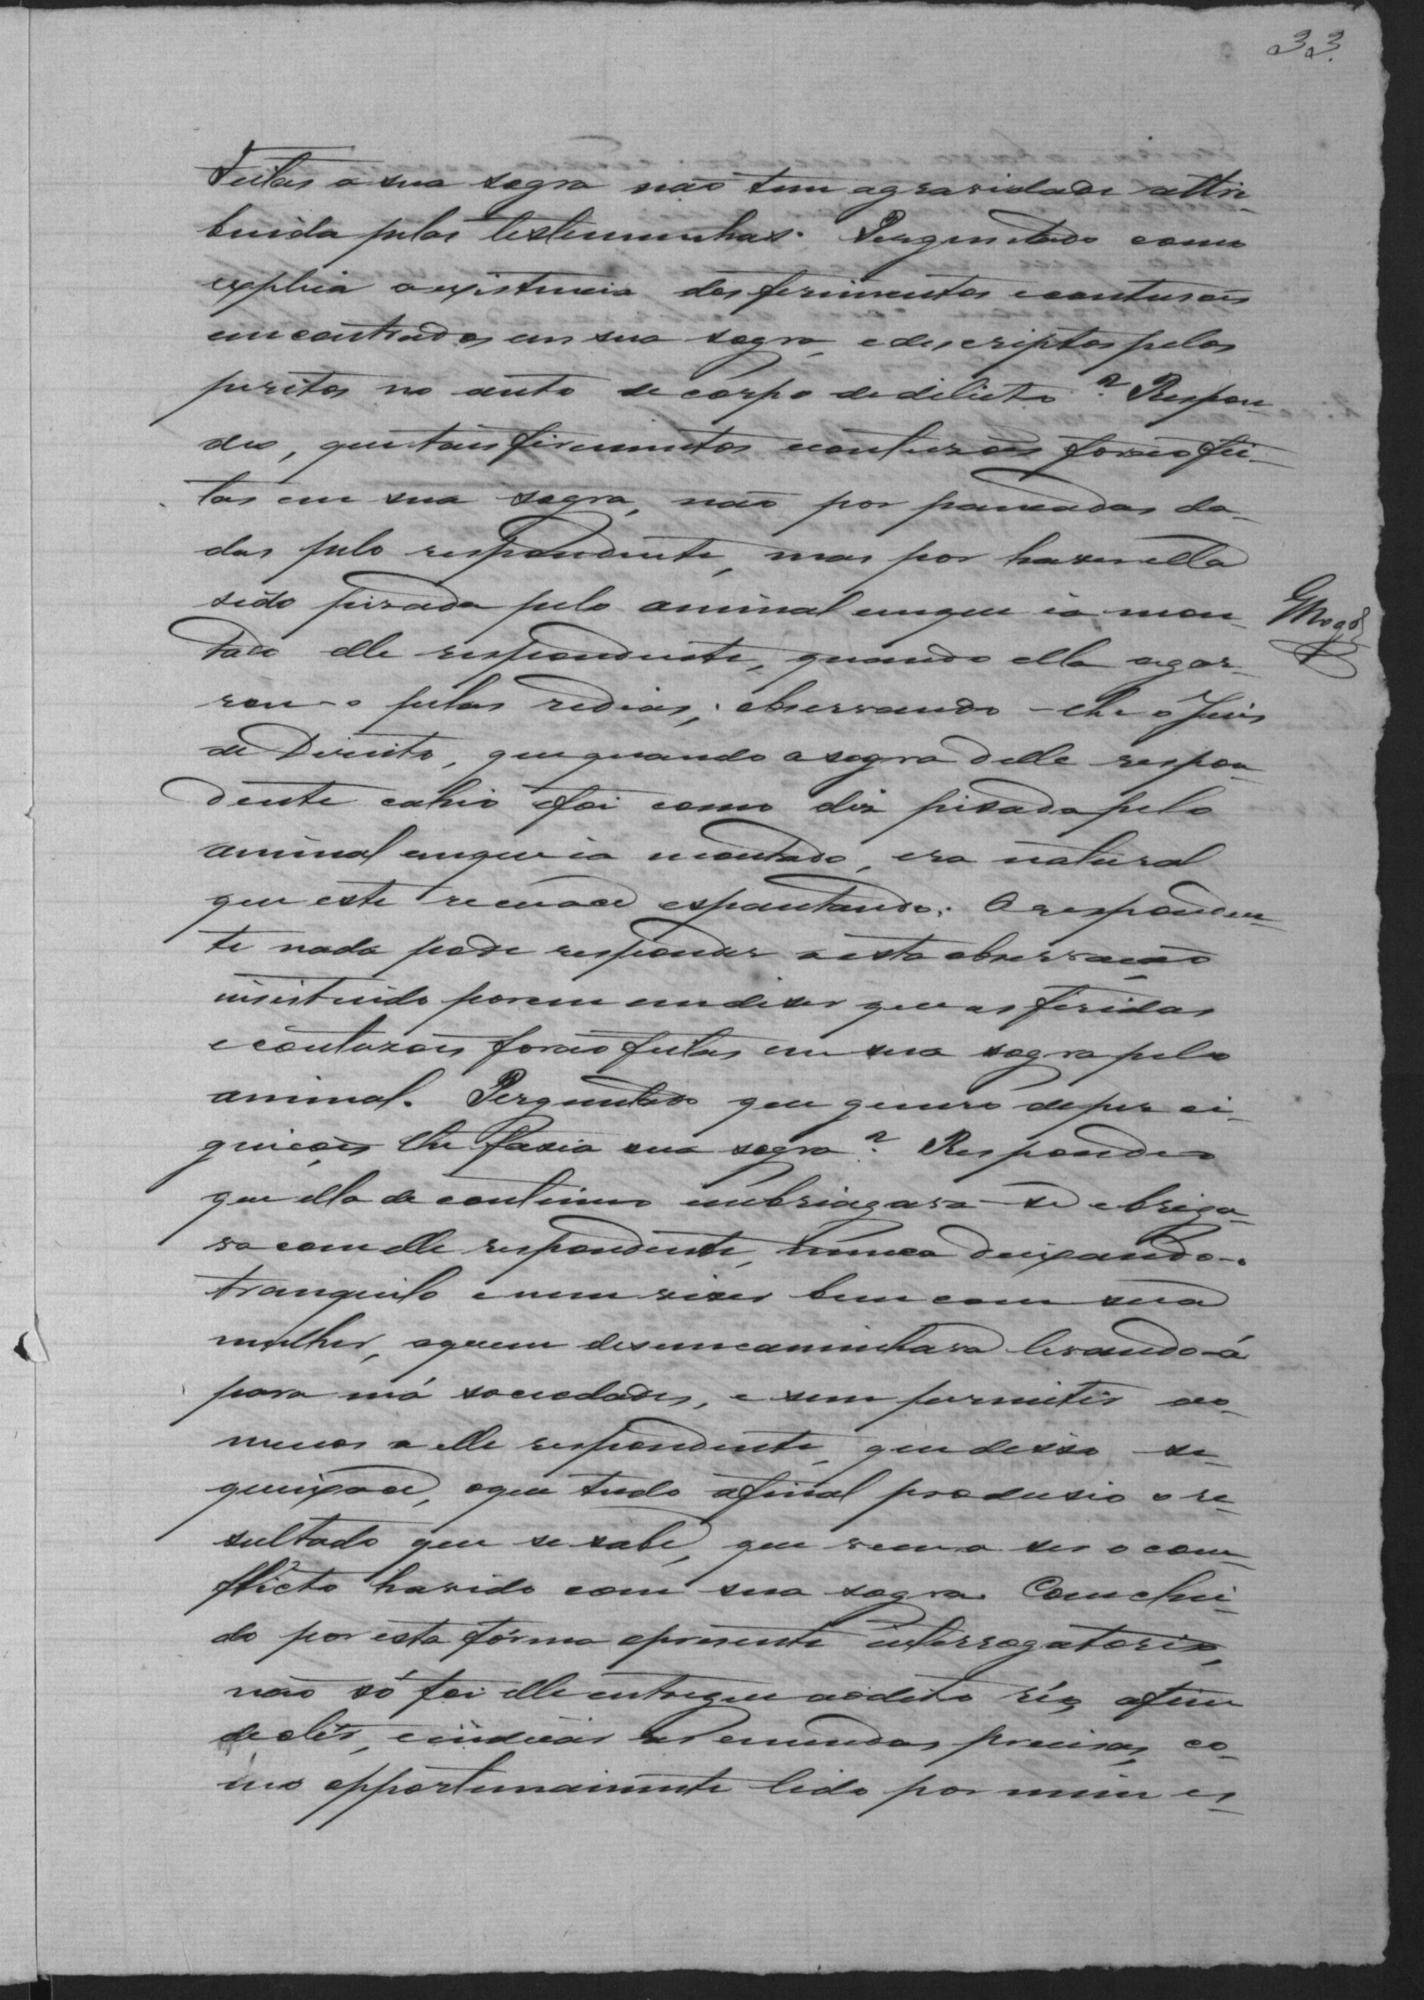 33
Feitas a sua sogra não tem a gravidade attri-
buida pelas testemunhas. Perguntado como
explica a existencia dos ferimentos e contusões
encontrados em sua sogra, e descriptos pelos
peritos no auto de corpo de delicto? Respon-
deo, que taes ferimentos e contuzões forão fei-
tas em sua sogra, não por pancadas da-
das pelo respondente, mas por haver ella
sido pizada pelo animal em que ia mon-
tado elle respondente, quando ella agar-
rou-o pelas redias; observando-lhe o Juis
de Direito, que quando a sogra delle respon-
dente cahio e foi como diz pisada pelo
animal em que ia montado, era natural
que este recuace espantando. O responden-
te nada pode responder a esta observação
insistindo porem em diser que as feridas
e contuzões forão feitas em sua sogra pelo
animal. Perguntado que genero de perci-
guições lhe fasia sua sogra? Respondeo
que ella de continuo embriagava-se e briga-
va com elle respondente, nunca deixando-o
tranquilo e nem viver bem com sua
mulher, a quem desencaminhava levando-á
para má sociedades, e sem permitir ao
menos a elle respondente, que desso se
queixace, o que tudo afinal produsio o re-
sultado que se sabe, que vem a ser o con-
flicto havido com sua sogra. Conclui-
do por esta fórma o presente interrogatorio,
não só foi elle entregue ao dito réo, afim
de lêr, e indicar as emendas precisas, co-
mo opportunamente lido por mim es-